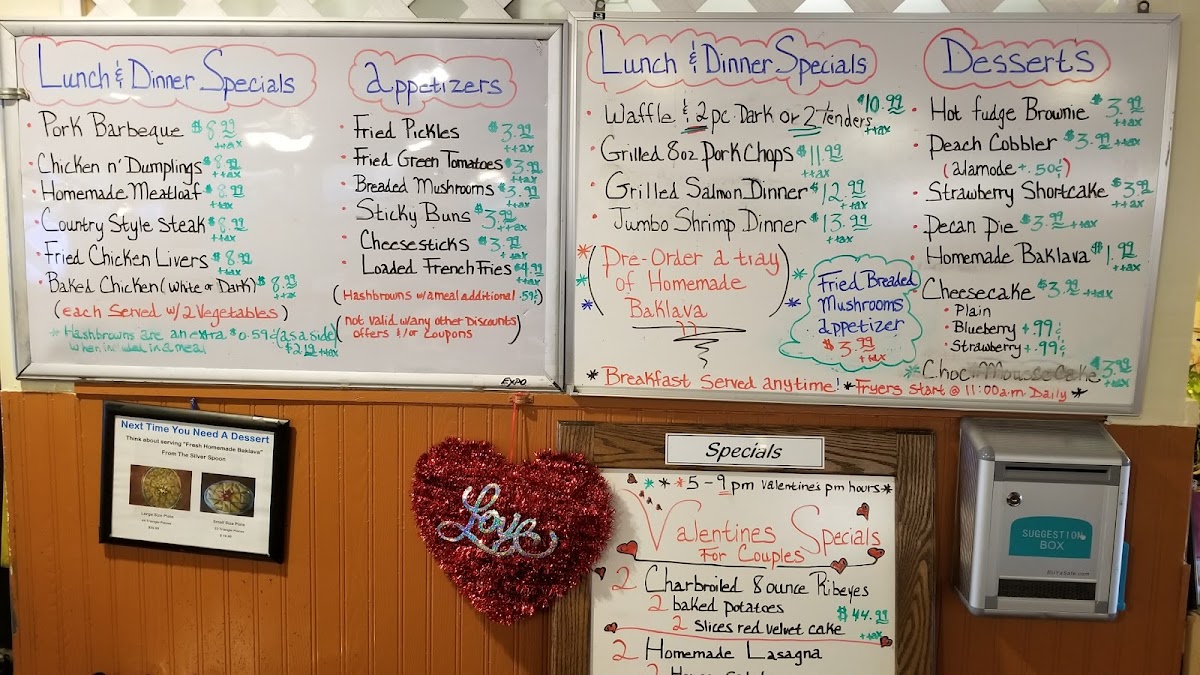 Lunch & Dinner Specials
• Pork Barbeque $8.99 ++ax
• Chicken n' Dumplings $8.99 ++ax
• Homemade Meatloaf $8.99 ++ax
• Country Style Steak $8.99 ++ax
• Fried Chicken Livers $8.99 ++ax
• Baked Chicken (White or Dark) $8.99 ++ax
(each Served w/2 Vegetables)
* Hashbrowns are an extra $0.59¢ (as a side)
when included in a meal $2.19 ++ax
appetizers
• Fried Pickles $3.99 ++ax
• Fried Green Tomatoes $3.99 ++ax
• Breaded Mushrooms $3.99 ++ax
• Sticky Buns $3.99 ++ax
• Cheesesticks $3.99 ++ax
• Loaded French Fries $4.99 ++ax
(Hashbrowns w/a meal additional .59¢)
(not valid w/any other Discounts
offers &/or Coupons)
EXPO
Lunch & Dinner Specials
• Waffle & 2 pc. Dark or 2 Tenders $10.99 ++ax
• Grilled 8oz Pork Chops $11.99 ++ax
• Grilled Salmon Dinner $12.99 ++ax
• Jumbo Shrimp Dinner $13.99 ++ax
(Pre-Order a tray
of Homemade
Baklava)
Fried Breaded
Mushrooms
appetizer
$3.99 ++ax
Desserts
• Hot fudge Brownie $3.99 ++ax
• Peach Cobbler $3.99 ++ax
(alamode + .50¢)
• Strawberry Shortcake $3.99 ++ax
• Pecan Pie $3.99 ++ax
• Homemade Baklava $1.99 ++ax
• Cheesecake $3.99 ++ax
• Plain
• Blueberry + .99¢
• Strawberry + .99¢
* Choc. Mousse Cake $3.99 ++ax
* Breakfast Served anytime! * Fryers Start @ 11:00a.m. Daily *
Next Time You Need A Dessert
Think about serving "Fresh Homemade Baklava"
From The Silver Spoon
Large Size Plate
Small Size Plate
Love
Specials
* * * 5 - 9 pm Valentine's pm hours *
Valentines Specials
For Couples
2 Charbroiled 8 ounce Ribeyes
2 baked potatoes
2 slices red velvet cake $44.99 ++ax
2 Homemade Lasagna
SUGGESTION
BOX